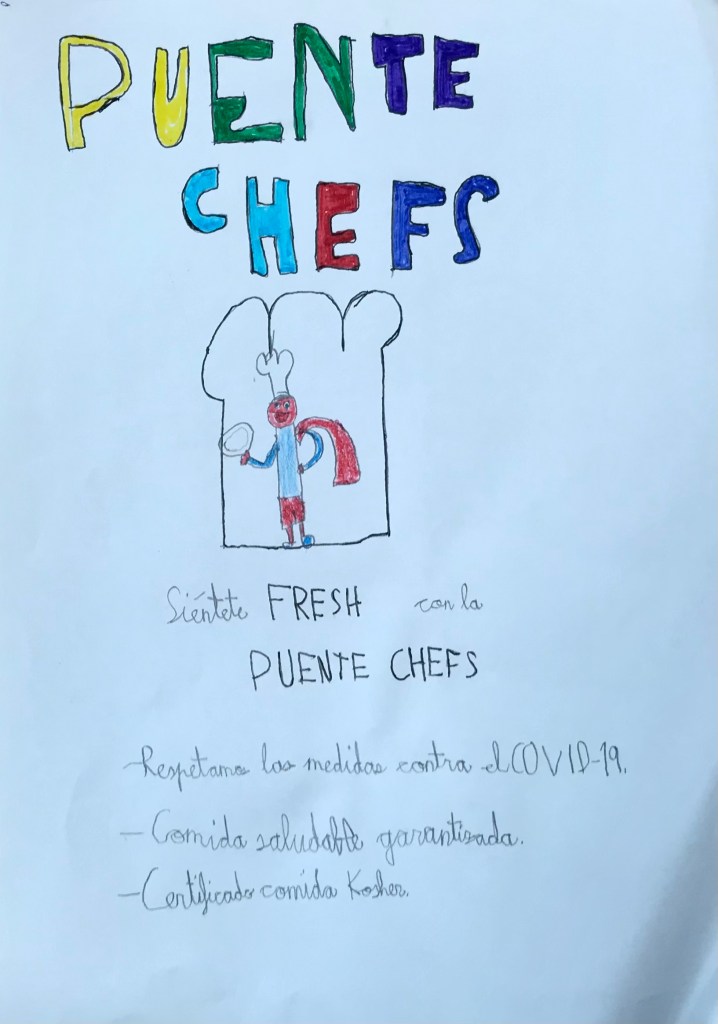 PUENTE
CHEFS
Siéntete FRESH con la
PUENTE CHEFS
-Respetamos las medidas contra el COVID-19.
- Comida saludable garantizada.
- Certificado comida Kosher.